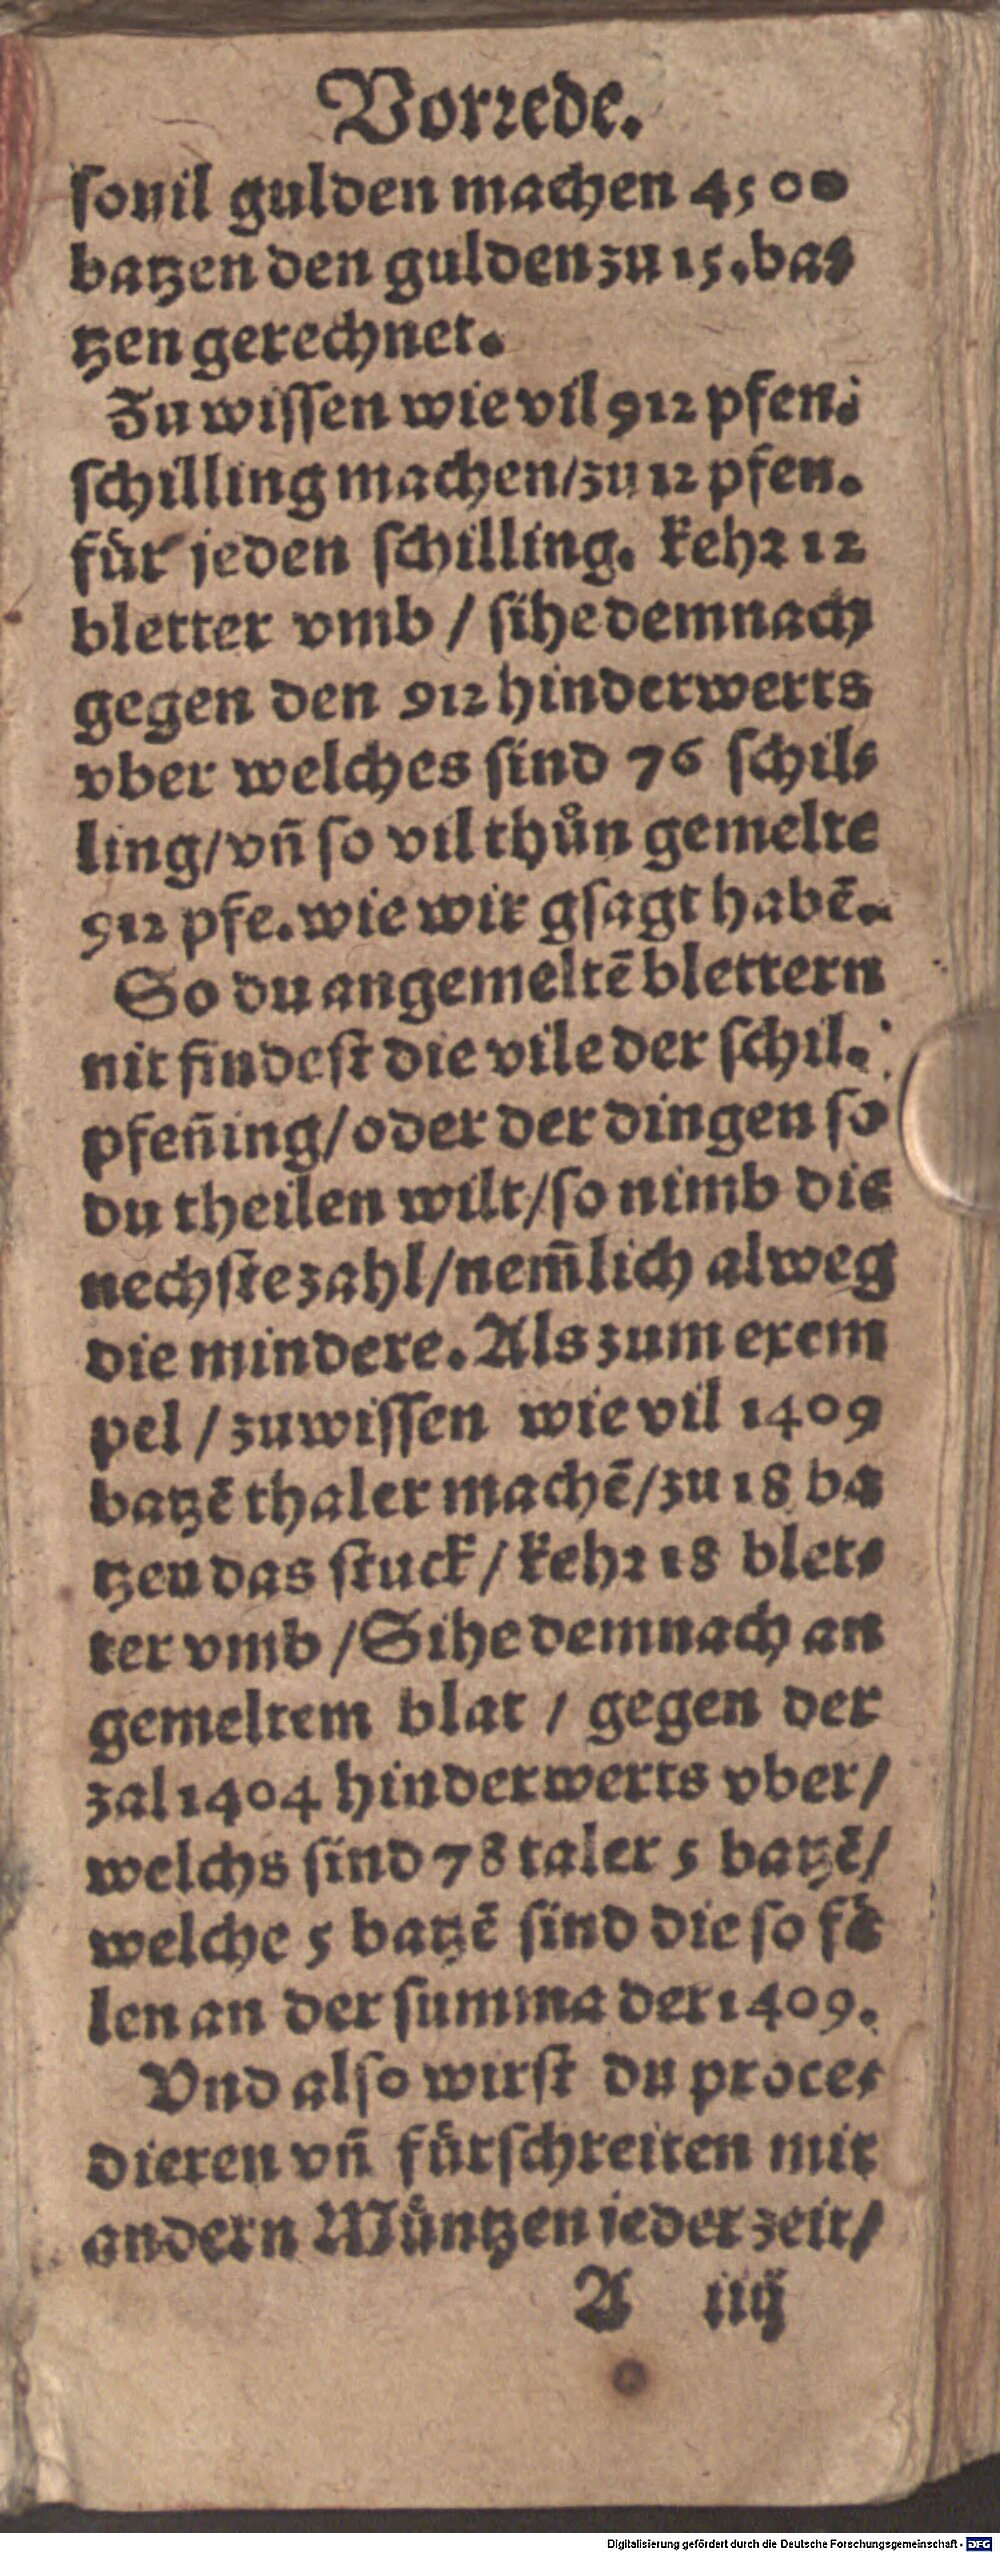 Vorrede.
souil gulden machen 4500
batzen den gulden zu 15. ba⸗
tzen gerechnet.
Zu wissen wie vil 912 pfen.
schilling machen/zu 12 pfen.
fuͤr jeden schilling. kehr 12
bletter vmb / sihe demnach
gegen den 912 hinderwerts
vber welches sind 76 schil⸗
ling/vn̄ so vil thuͦn gemelte
912 pfe. wie wir gsagt habē.
So du an gemeltē blettern
nit findest die vile der schil.
pfen̄ing/oder der dingen so
du theilen wilt/so nimb die
nechste zahl/nem̄lich alweg
die mindere. Als zum exem
pel / zuwissen wie vil 1409
batzē thaler machē/zu 18 ba
tzen das stuck / kehr 18 blet⸗
ter vmb /Sihe demnach an
gemeltem blat / gegen der
zal 1404 hinderwerts vber/
welchs sind 78 taler 5 batzē/
welche 5 batzē sind die so faͤ
len an der summa der 1409.
Vnd also wirst du proce⸗
dieren vn̄ fuͤrschreiten mit
andern Muͤntzen jeder zeit/
A iiij
Digitalisierung gefördert durch die Deutsche Forschungsgemeinschaft - DFG